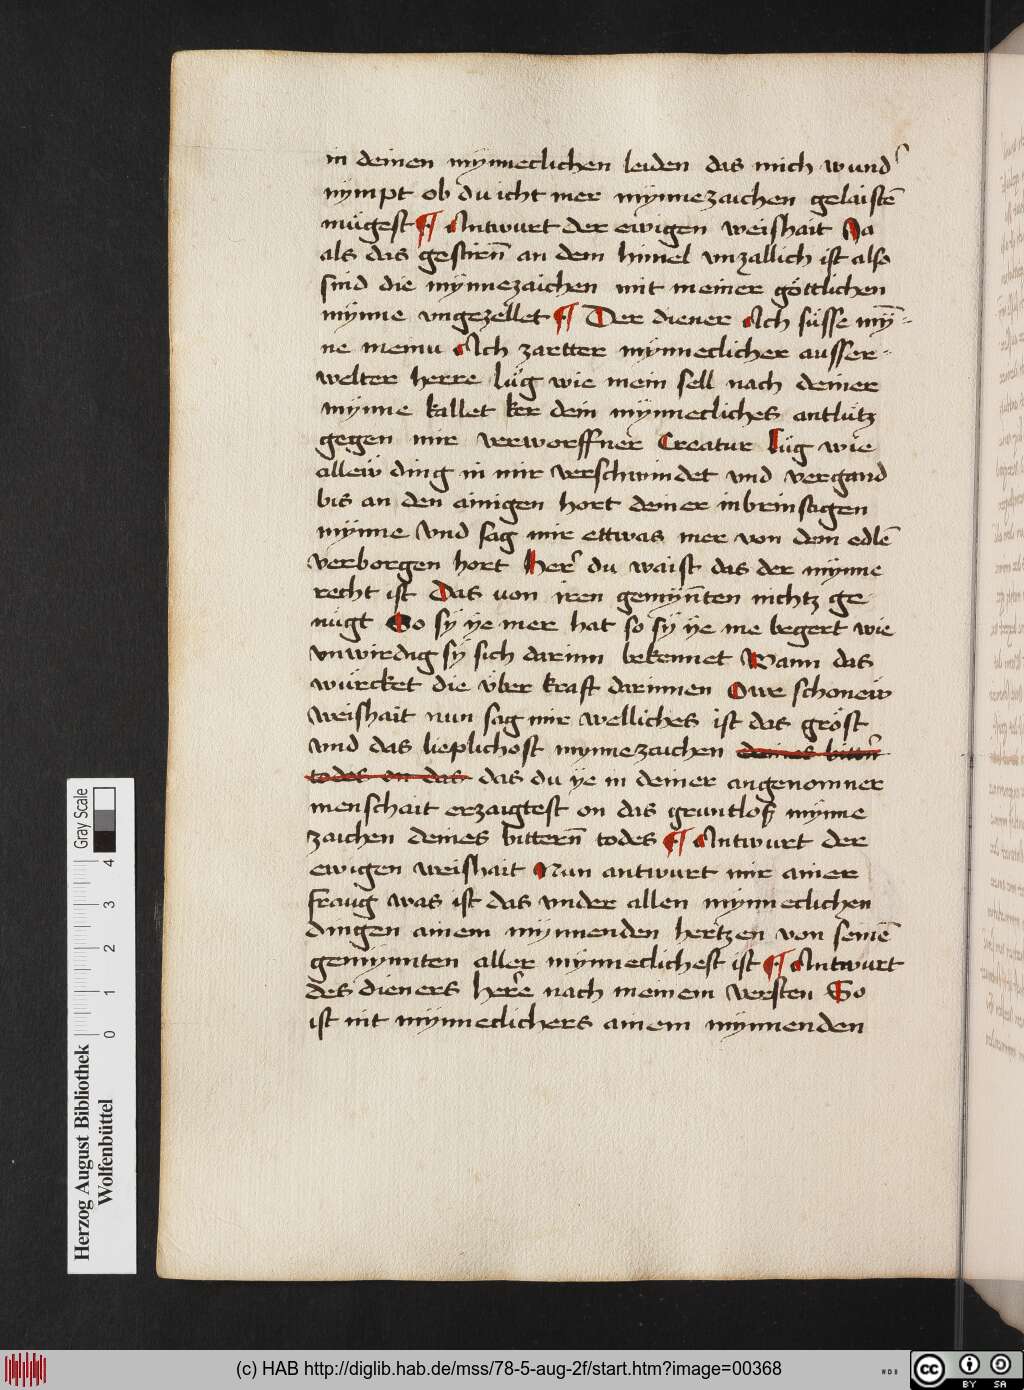 in deinen mynneclichen leiden das mich wund᷎
nympt ob du icht mer mynnezaichen gelaistē
mügest ¶ Antwurt der ewigen weishait Na
als das gestirn̄ an dem himel vnzallich ist also
sind die mynnezaichen mit meiner göttlichen
mynne vngezellet ¶ Der diener Ach süsse mȳ-
ne meinu Ach zartter mynneclicher ausser-
welter herre lůg wie mein sell nach deiner
mynne kallet ker dein mynnecliches antlütz
gegen mir verworffner Creatur lůg wie
allew ding in mir verschwindet vnd vergand
bis an den ainigen hort deiner inbrinstigen
mynne Vnd sag mir ettwas mer von dem edlē
verborgen hort Her᷎ du waist das der mynne
recht ist Das von iren gemyn̄ten nichtz ge
nügt So sy ye mer hat so sy ye me begert wie
vnwirdig sy sich darinn bekennet Wann das
würcket die über kraft darinnen Owe schonew
weishait nun sag mir welliches ist das gröst
vnd das lieplichost mynnezaichen deines bittn᷎
todes on das das du ye in deiner angenomner
menschait erzaigtest on das gruntlos mynne
zaichen deines bittern̄ todes ¶ Antwurt der
ewigen weishait Nun antwurt mir ainer
fraug was ist das vnder allen mynneclichen
dingen ainem mynnenden hertzen von seinē
gemynnten aller mynneclichest ist ¶ Antwurt
des dieners her᷎e nach meinem versten So
ist nit mynneclichers ainem mynnenden
Herzog August Bibliothek
Wolfenbüttel
0 1 2 3 4
Gray Scale
(c) HAB http://diglib.hab.de/mss/78-5-aug-2f/start.htm?image=00368
WDB
CC BY SA